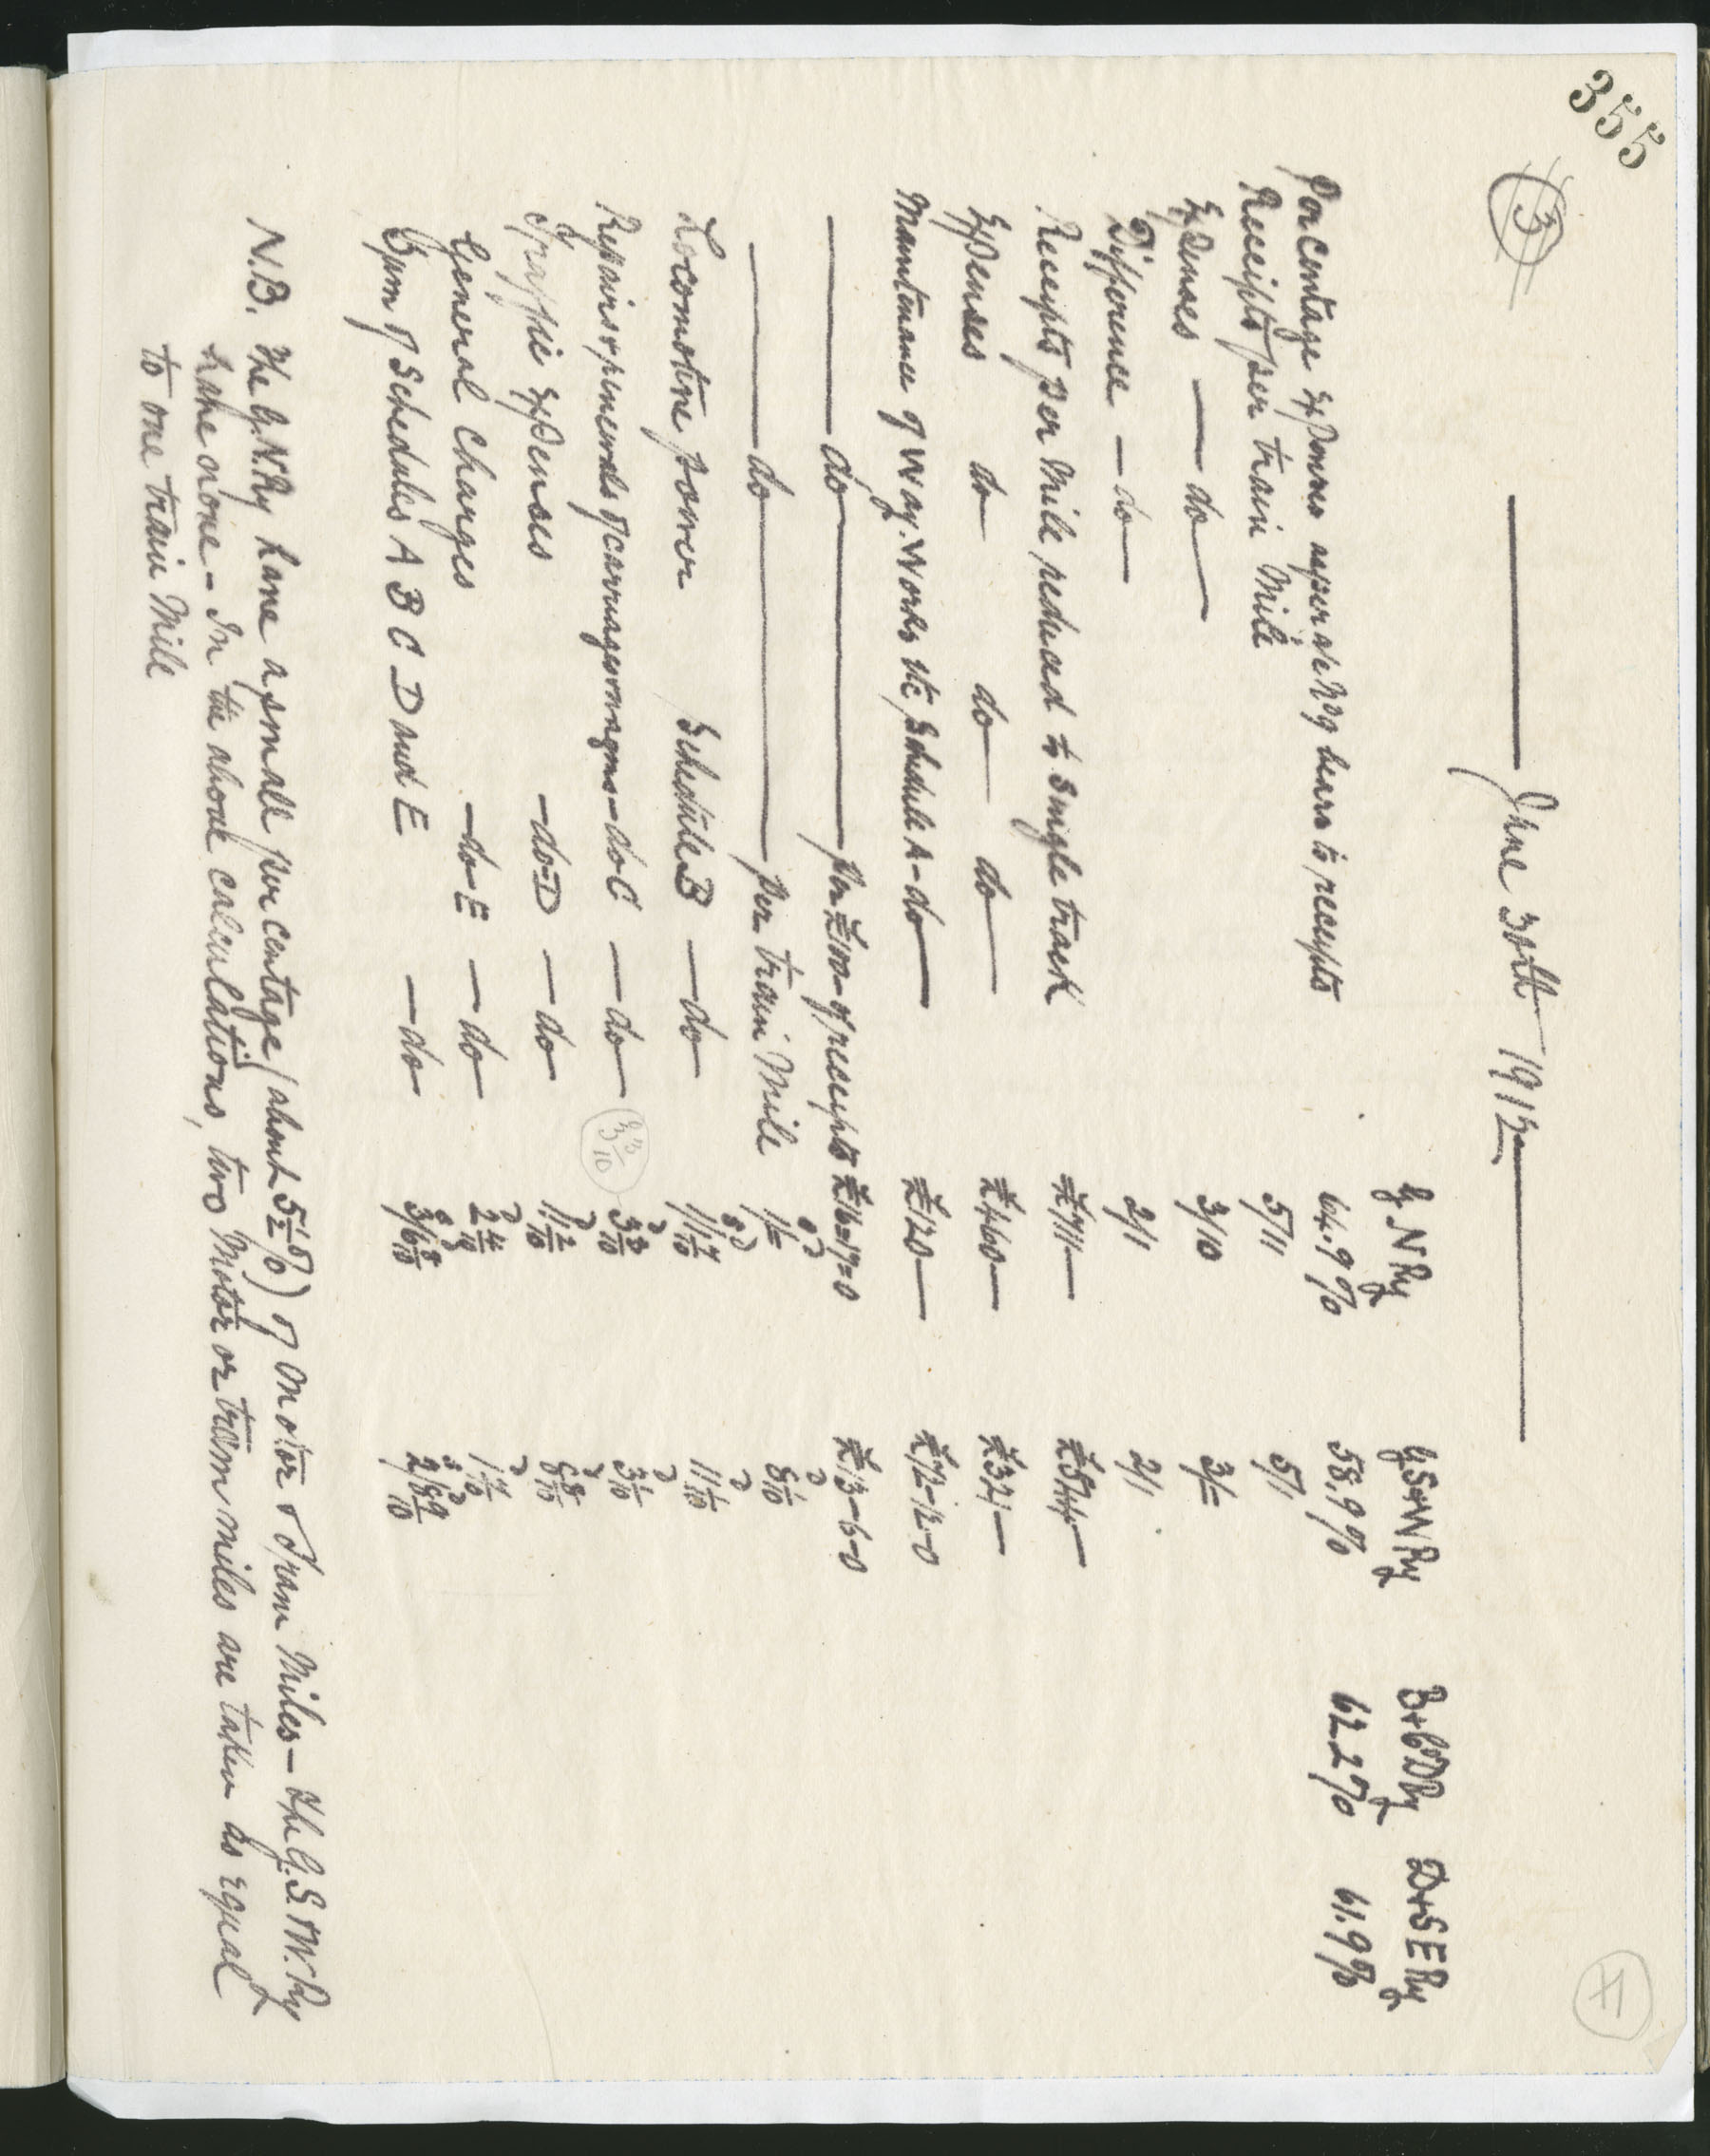 355
3
II
June 30th 1912
G.N Ry G.S&W Ry B&C D Ry D&S E Ry
Percentage Expenses as per a/c No 9 bears to receipts 64.9% 58.9% 62.2% 61.9%
Receipts per train Mile 5/11 5/1
Expenses — do — 3/10 3/=
Difference — do — 2/1 2/1
Receipts per Mile reduced to single track £711— £544—
Expenses do do do £460— £321—
Maintenance of Way. Works etc Schedule A - do — £120— £72-12-0
— do — per £100- of receipts £16=17=0 £13-6-0
— do — per train Mile 1/= 8 1/10
Locomotive power Schedule B — do 1/1 7/10 11 1/10
Repairs & renewals of carriages & wagons - do C — do 3 3/10 3 3/10 3 1/10
Traffic Expenses - do D — do 11 2/10 8 8/10
General Charges - do E — do 2 4/10 1 7/10
Sum of Schedules A B C D and E — do 3/6 8/10 2/8 9/10
N.B. The G.N.Ry have a small per centage (about 5½%) of Motor & Tram Miles — The G.S.&W. Ry
have none — In the above calculations, two Motor or tram miles are taken as equal
to one train Mile